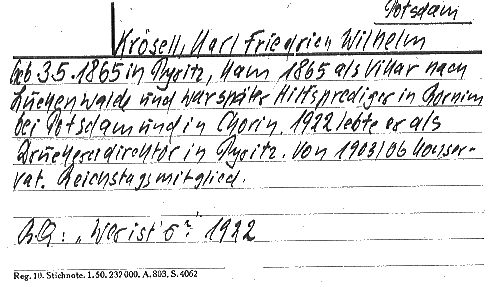 Potsdam
Krösell, Karl Friedrich Wilhelm
Geb 3.5. 1865 in Pyritz, kam 1865 als Vikar nach
Luckenwalde und war später Hilfsprediger in Bornim
bei Potsdam und in Chorin. 1922 lebte er als
Druckereidirektor in Pyritz. Von 1903/06 konser-
vat. Reichstagsmitglied.
B.Q: „Wer ist's?" 1922
Reg. 10. Stichnote. 1. 50. 232 000. A. 803. S. 4062